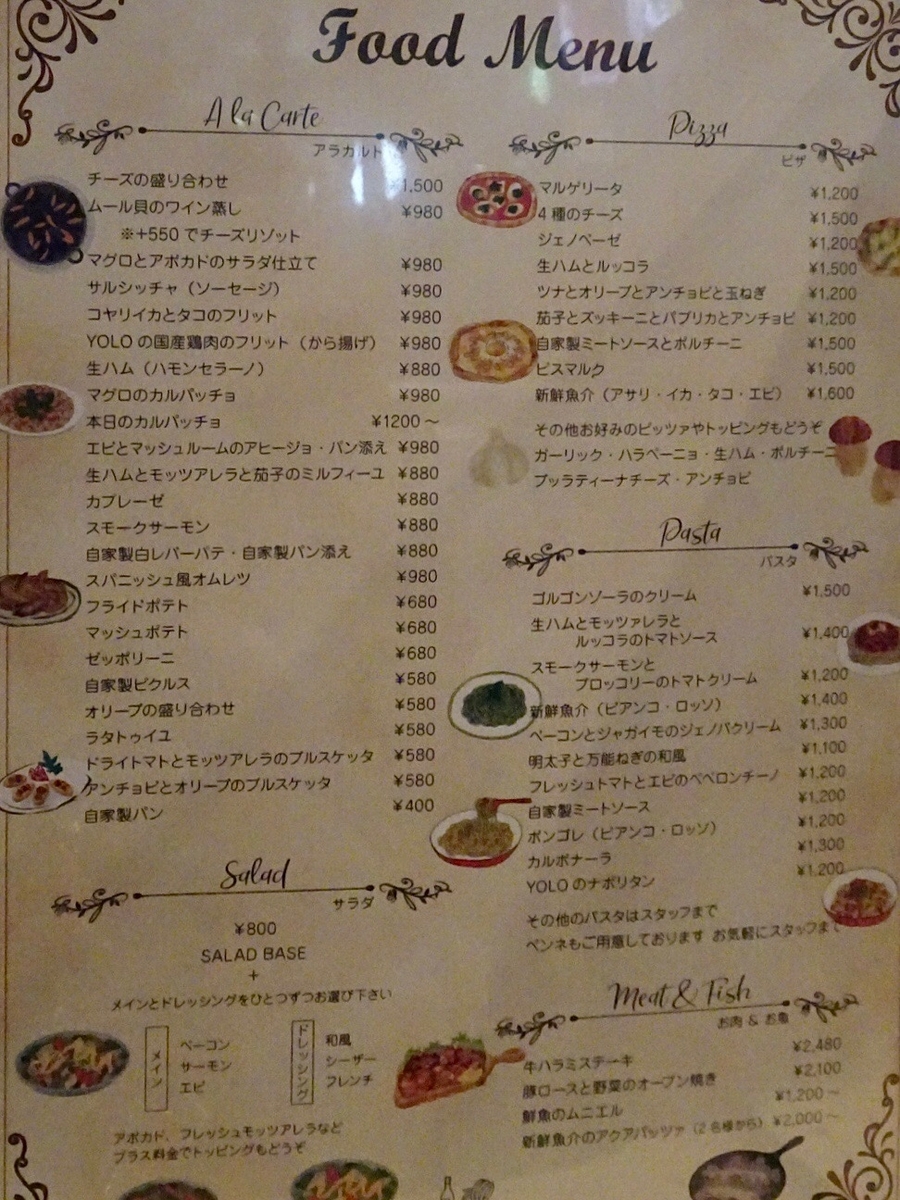 Food Menu
A la Carte
アラカルト
チーズの盛り合わせ ¥1,500
ムール貝のワイン蒸し ¥980
※+550 でチーズリゾット
マグロとアボカドのサラダ仕立て ¥980
サルシッチャ（ソーセージ） ¥980
コヤリイカとタコのフリット ¥980
YOLO の国産鶏肉のフリット（から揚げ） ¥980
生ハム（ハモンセラーノ） ¥880
マグロのカルパッチョ ¥980
本日のカルパッチョ ¥1200 ～
エビとマッシュルームのアヒージョ・パン添え ¥980
生ハムとモッツアレラと茄子のミルフィーユ ¥880
カプレーゼ ¥880
スモークサーモン ¥880
自家製白レバーパテ・自家製パン添え ¥880
スパニッシュ風オムレツ ¥980
フライドポテト ¥680
マッシュポテト ¥680
ゼッポリーニ ¥680
自家製ピクルス ¥580
オリーブの盛り合わせ ¥580
ラタトゥイユ ¥580
ドライトマトとモッツアレラのブルスケッタ ¥580
アンチョビとオリーブのブルスケッタ ¥580
自家製パン ¥400
Salad
サラダ
¥800
SALAD BASE
+
メインとドレッシングをひとつずつお選び下さい
メイン
ベーコン
サーモン
エビ
ドレッシング
和風
シーザー
フレンチ
アボカド、フレッシュモッツアレラなど
プラス料金でトッピングもどうぞ
Pizza
ピザ
マルゲリータ ¥1,200
4 種のチーズ ¥1,500
ジェノベーゼ ¥1,200
生ハムとルッコラ ¥1,500
ツナとオリーブとアンチョビと玉ねぎ ¥1,200
茄子とズッキーニとパプリカとアンチョビ ¥1,200
自家製ミートソースとポルチーニ ¥1,500
ビスマルク ¥1,500
新鮮魚介（アサリ・イカ・タコ・エビ） ¥1,600
その他お好みのピッツァやトッピングもどうぞ
ガーリック・ハラペーニョ・生ハム・ポルチーニ
ブッラティーナチーズ・アンチョビ
Pasta
パスタ
ゴルゴンゾーラのクリーム ¥1,500
生ハムとモッツァレラと
ルッコラのトマトソース ¥1,400
スモークサーモンと
ブロッコリーのトマトクリーム ¥1,200
新鮮魚介（ビアンコ・ロッソ） ¥1,400
ベーコンとジャガイモのジェノバクリーム ¥1,300
明太子と万能ねぎの和風 ¥1,100
フレッシュトマトとエビのペペロンチーノ ¥1,200
自家製ミートソース ¥1,200
ボンゴレ（ビアンコ・ロッソ） ¥1,200
カルボナーラ ¥1,300
YOLO のナポリタン ¥1,200
その他のパスタはスタッフまで
ペンネもご用意しております お気軽にスタッフまで
Meat & Fish
お肉 & お魚
牛ハラミステーキ ¥2,480
豚ロースと野菜のオーブン焼き ¥2,100
鮮魚のムニエル ¥1,200 ～
新鮮魚介のアクアパッツァ（2 名様から） ¥2,000 ～